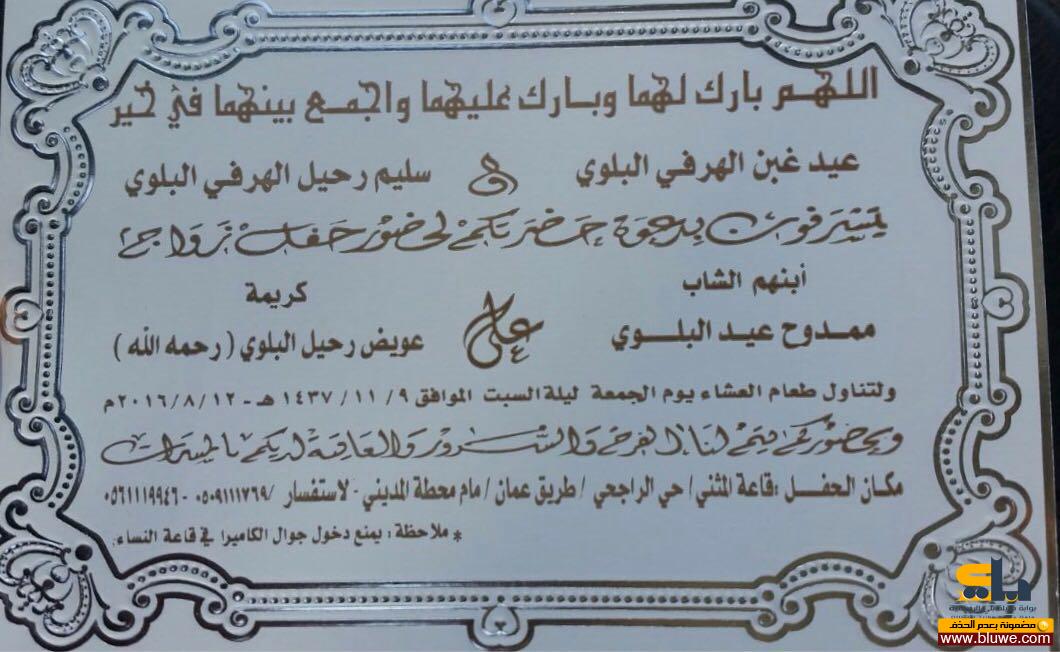 اللهم بارك لهما وبارك عليهما واجمع بينهما في خير
عيد غبن الهرفي البلوي و سليم رحيل الهرفي البلوي
يتشرفون بدعوة حضرتكم لحضور حفل زواج
أبنهم الشاب كريمة
ممدوح عيد البلوي على عويض رحيل البلوي ( رحمه الله )
ولتناول طعام العشاء يوم الجمعة ليلة السبت الموافق ٩ / ١١ / ١٤٣٧ هـ - ١٢ / ٨ / ٢٠١٦ م
وبحضوركم يتم لنا الفرح والسرور والعاقبة لديكم بالمسرات
مكان الحفل : قاعة المثنى / حي الراجحي / طريق عمان / مام محطة المديني - لاستفسار / ٠٥٠٩١١١٧٦٩ - ٠٥٦١١١٩٩٤٦
* ملاحظة : يمنع دخول جوال الكاميرا في قاعة النساء.
بلي
www.bluwe.com